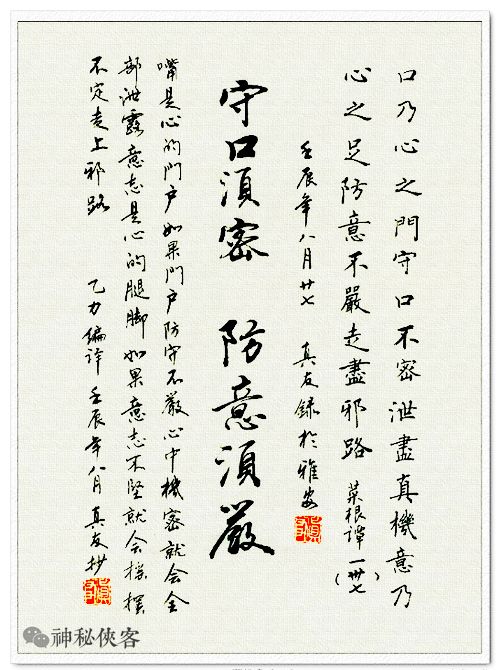 口乃心之門守口不密泄盡真機意乃
心之足防意不嚴走盡邪路 菜根譚一(卅七)
壬辰年八月廿七 真友錄於雅安
守口須密 防意須嚴
嘴是心的門户如果門户防守不嚴心中機密就会全
部泄露意志是心的腿脚如果意志不坚就会摇摆
不定走上邪路 乙力编译 壬辰年八月真友抄
神秘俠客